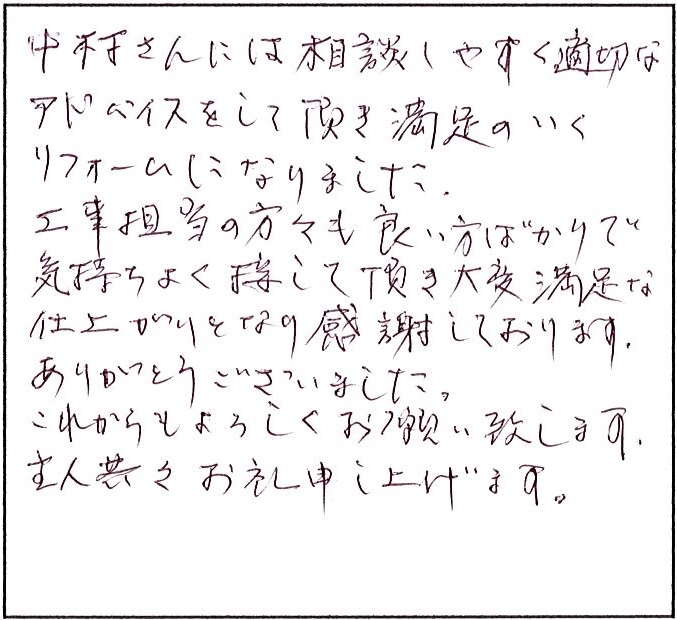 中村さんには相談しやすく適切な
アドバイスをして頂き満足のいく
リフォームになりました.
工事担当の方々も良い方ばかりで
気持ちよく接して頂き大変満足な
仕上がりとなり感謝しております.
ありがとうございました。
これからもよろしくお願い致します.
主人共々お礼申し上げます。